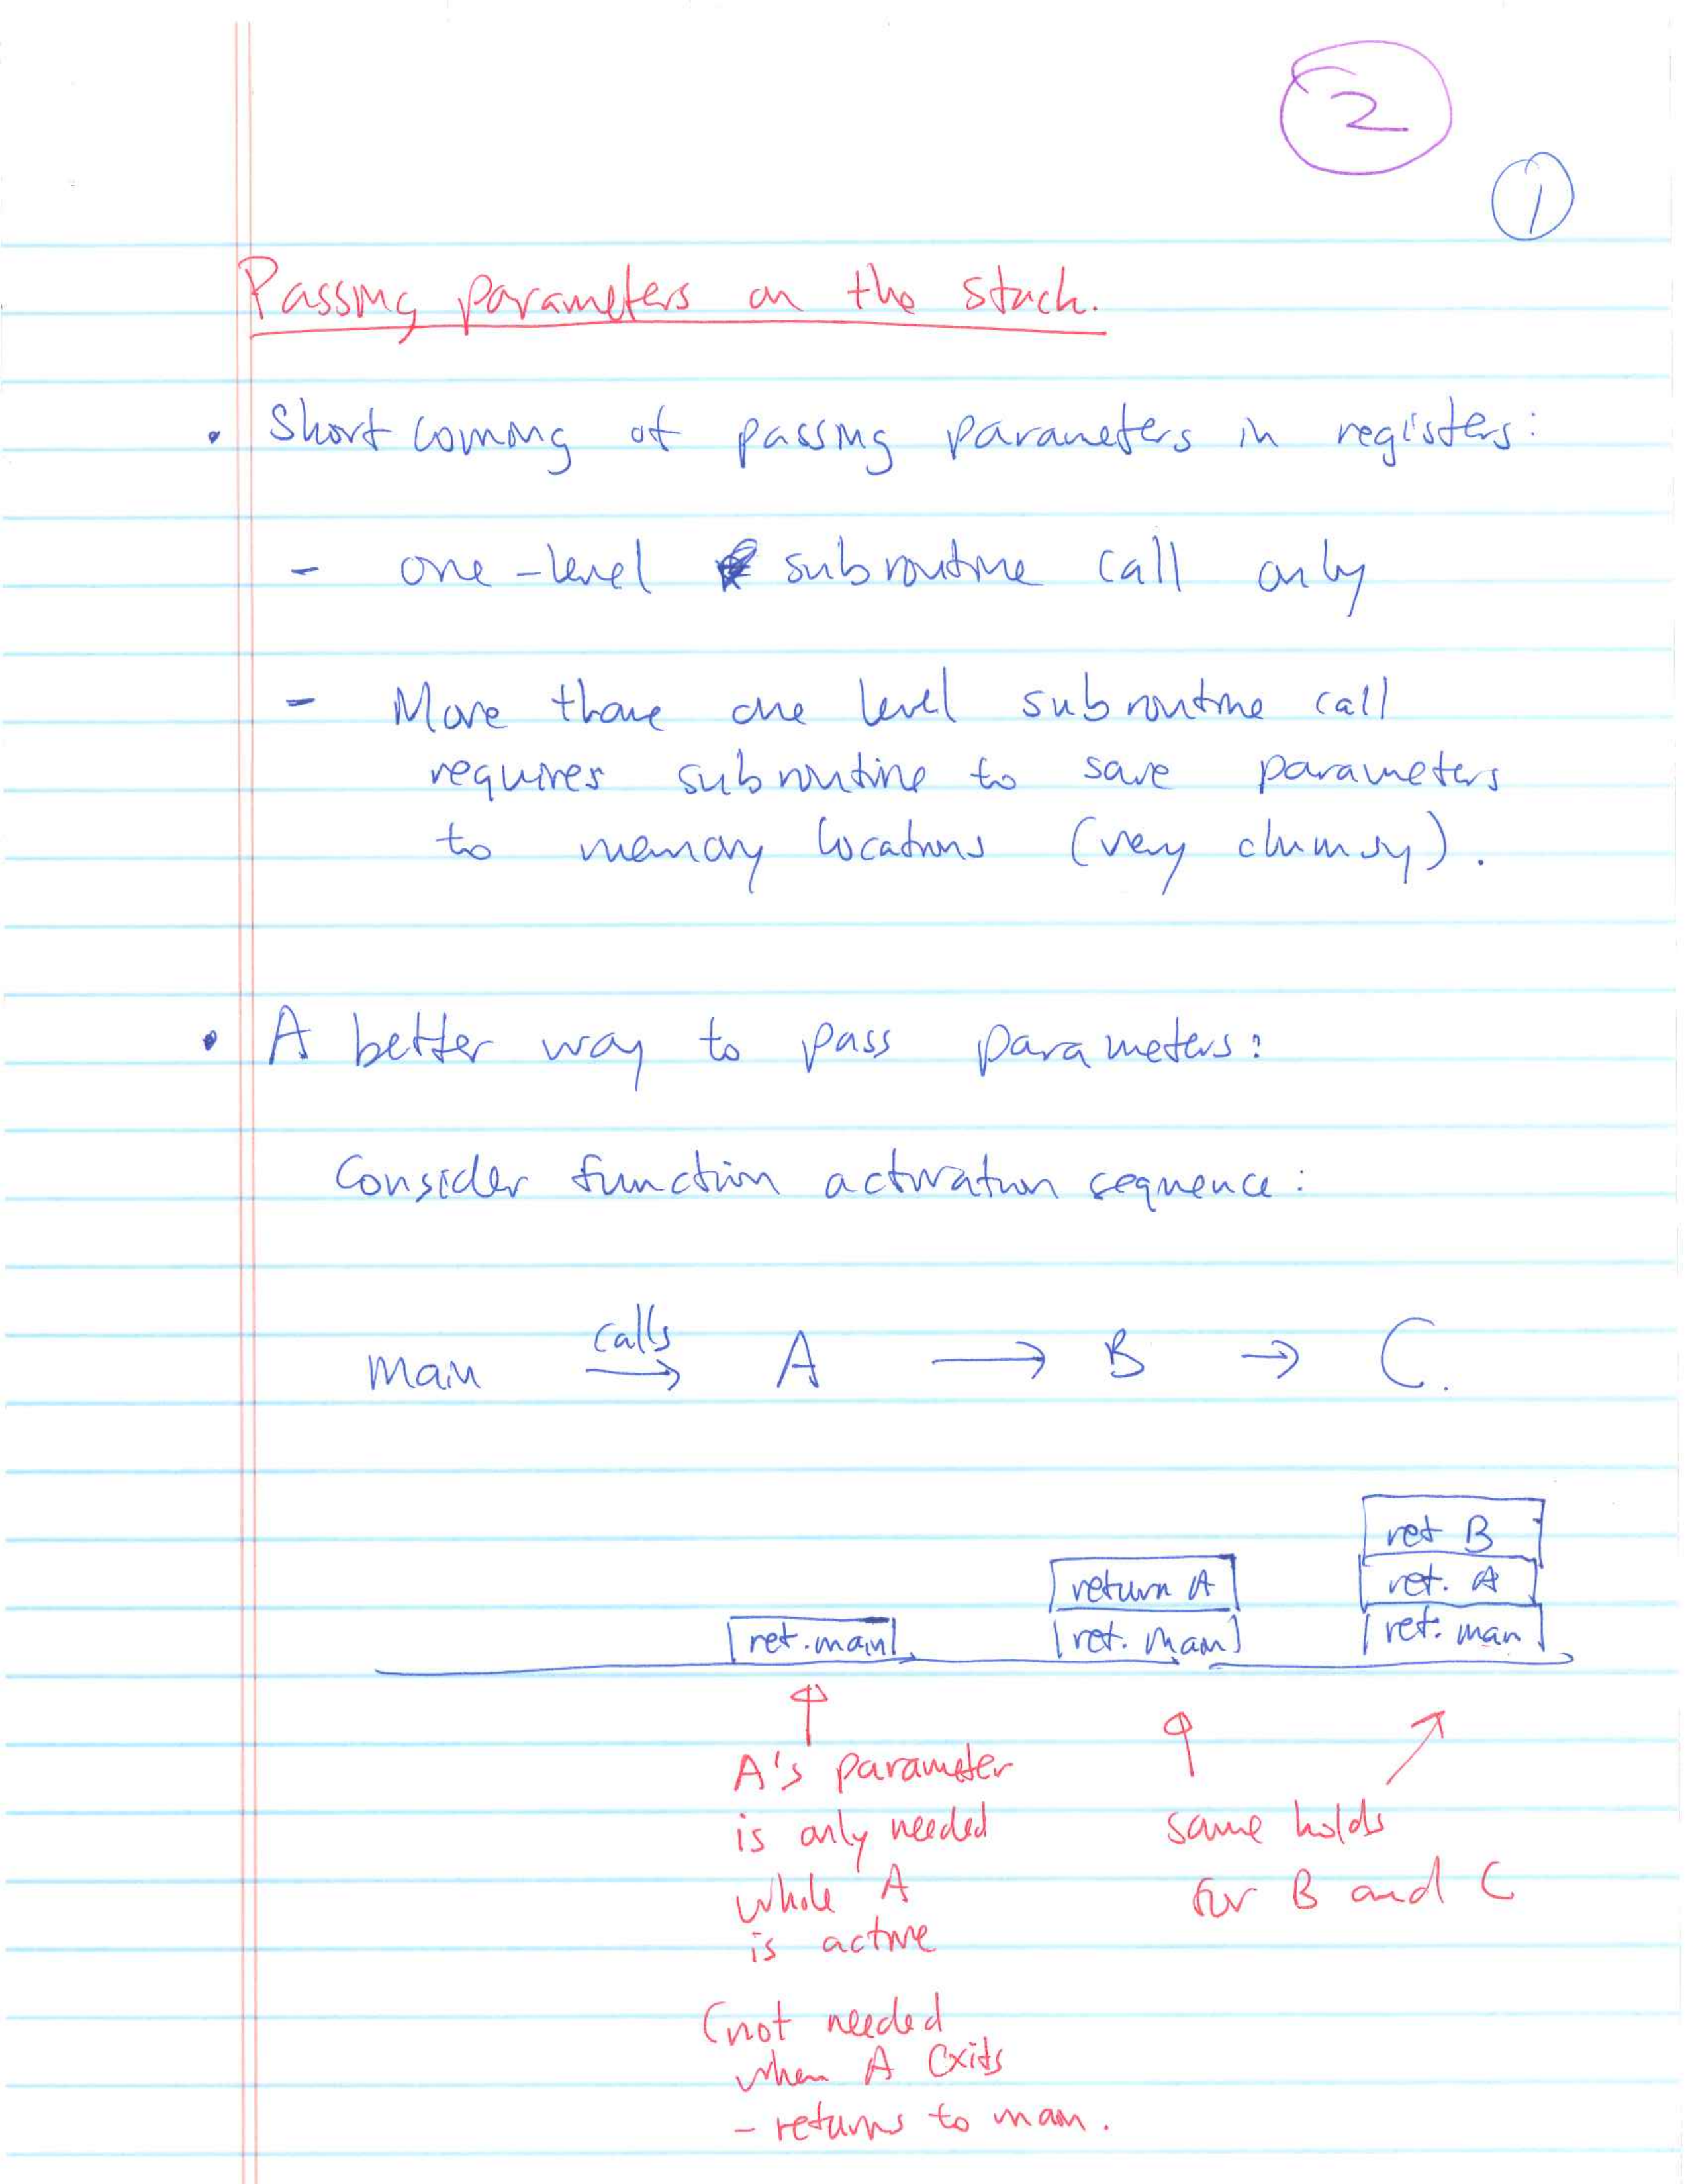 2
1
Passing parameters on the stack.
• Short coming of passing parameters in registers:
- one-level subroutine call only
- More thane one level subroutine call
requires subroutine to save parameters
to memory locations (very clumsy).
• A better way to pass parameters:
Consider function activation sequence:
main calls → A → B → C.
ret B
return A ret. A
ret. main ret. main ret. main
A's parameter
is only needed same holds
while A for B and C
is active
(not needed
when A exits
- returns to main.